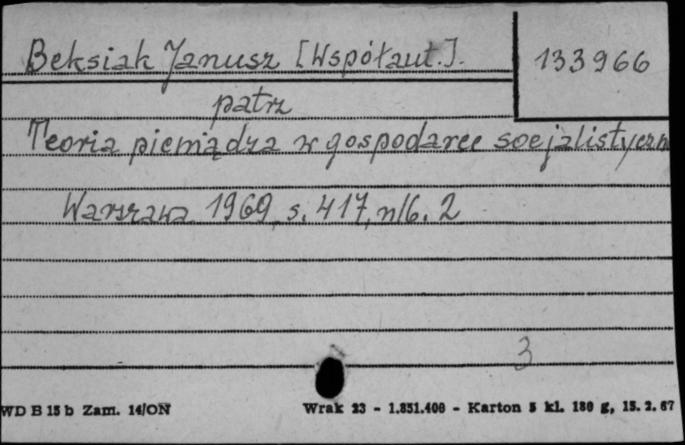 Beksiak Janusz [Współaut.].
133966
patrz
Teoria pieniądza w gospodarce socjalistyczn
Warszawa 1969, s. 417, nlb. 2
3
WD B 15 b Zam. 14/ON
Wrak 23 - 1.851.400 - Karton 5 kl. 180 g, 15. 2. 67